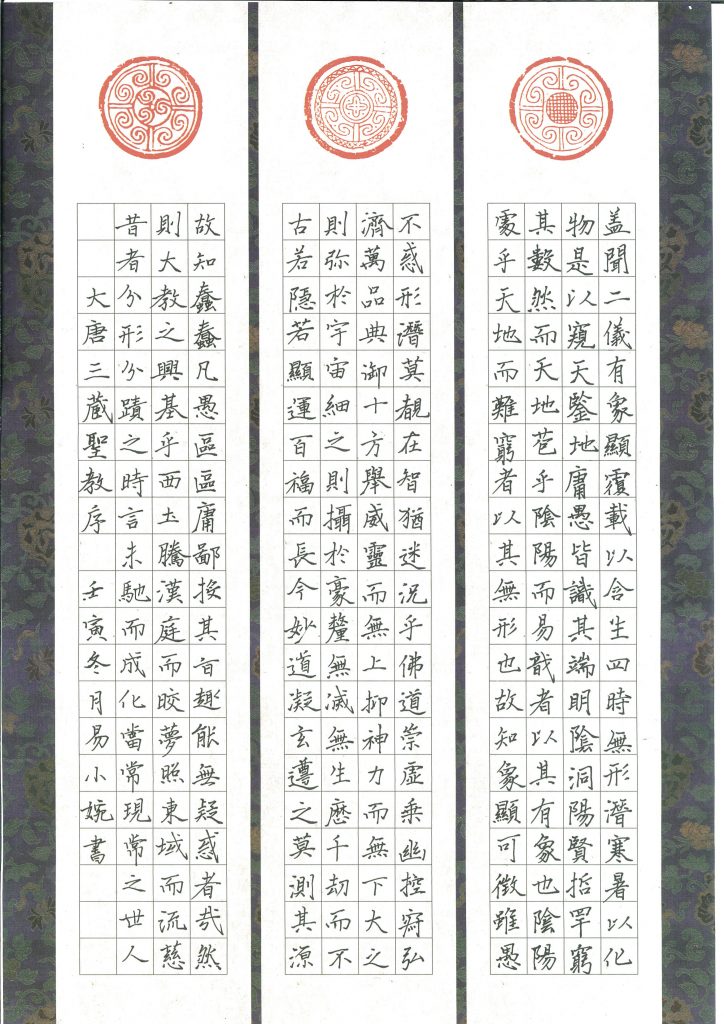 盖聞二儀有象顯覆載以含生四時無形潛寒暑以化
物是以窺天鑒地庸愚皆識其端明陰洞陽賢哲罕窮
其數然而天地苞乎陰陽而易識者以其有象也陰陽
處乎天地而難窮者以其無形也故知象顯可徵雖愚
不惑形潛莫覩在智猶迷況乎佛道崇虛乘幽控寂弘
濟萬品典御十方舉威靈而無上抑神力而無下大之
則弥於宇宙細之則攝於豪釐無滅無生歷千劫而不
古若隱若顯運百福而長今妙道凝玄遵之莫測其源
故知蠢蠢凡愚區區庸鄙投其旨趣能無疑惑者哉然
則大教之興基乎西土騰漢庭而皎夢照東域而流慈
昔者分形分蹟之時言未馳而成化當常現常之世人
大唐三藏聖教序 壬寅冬月易小婉書